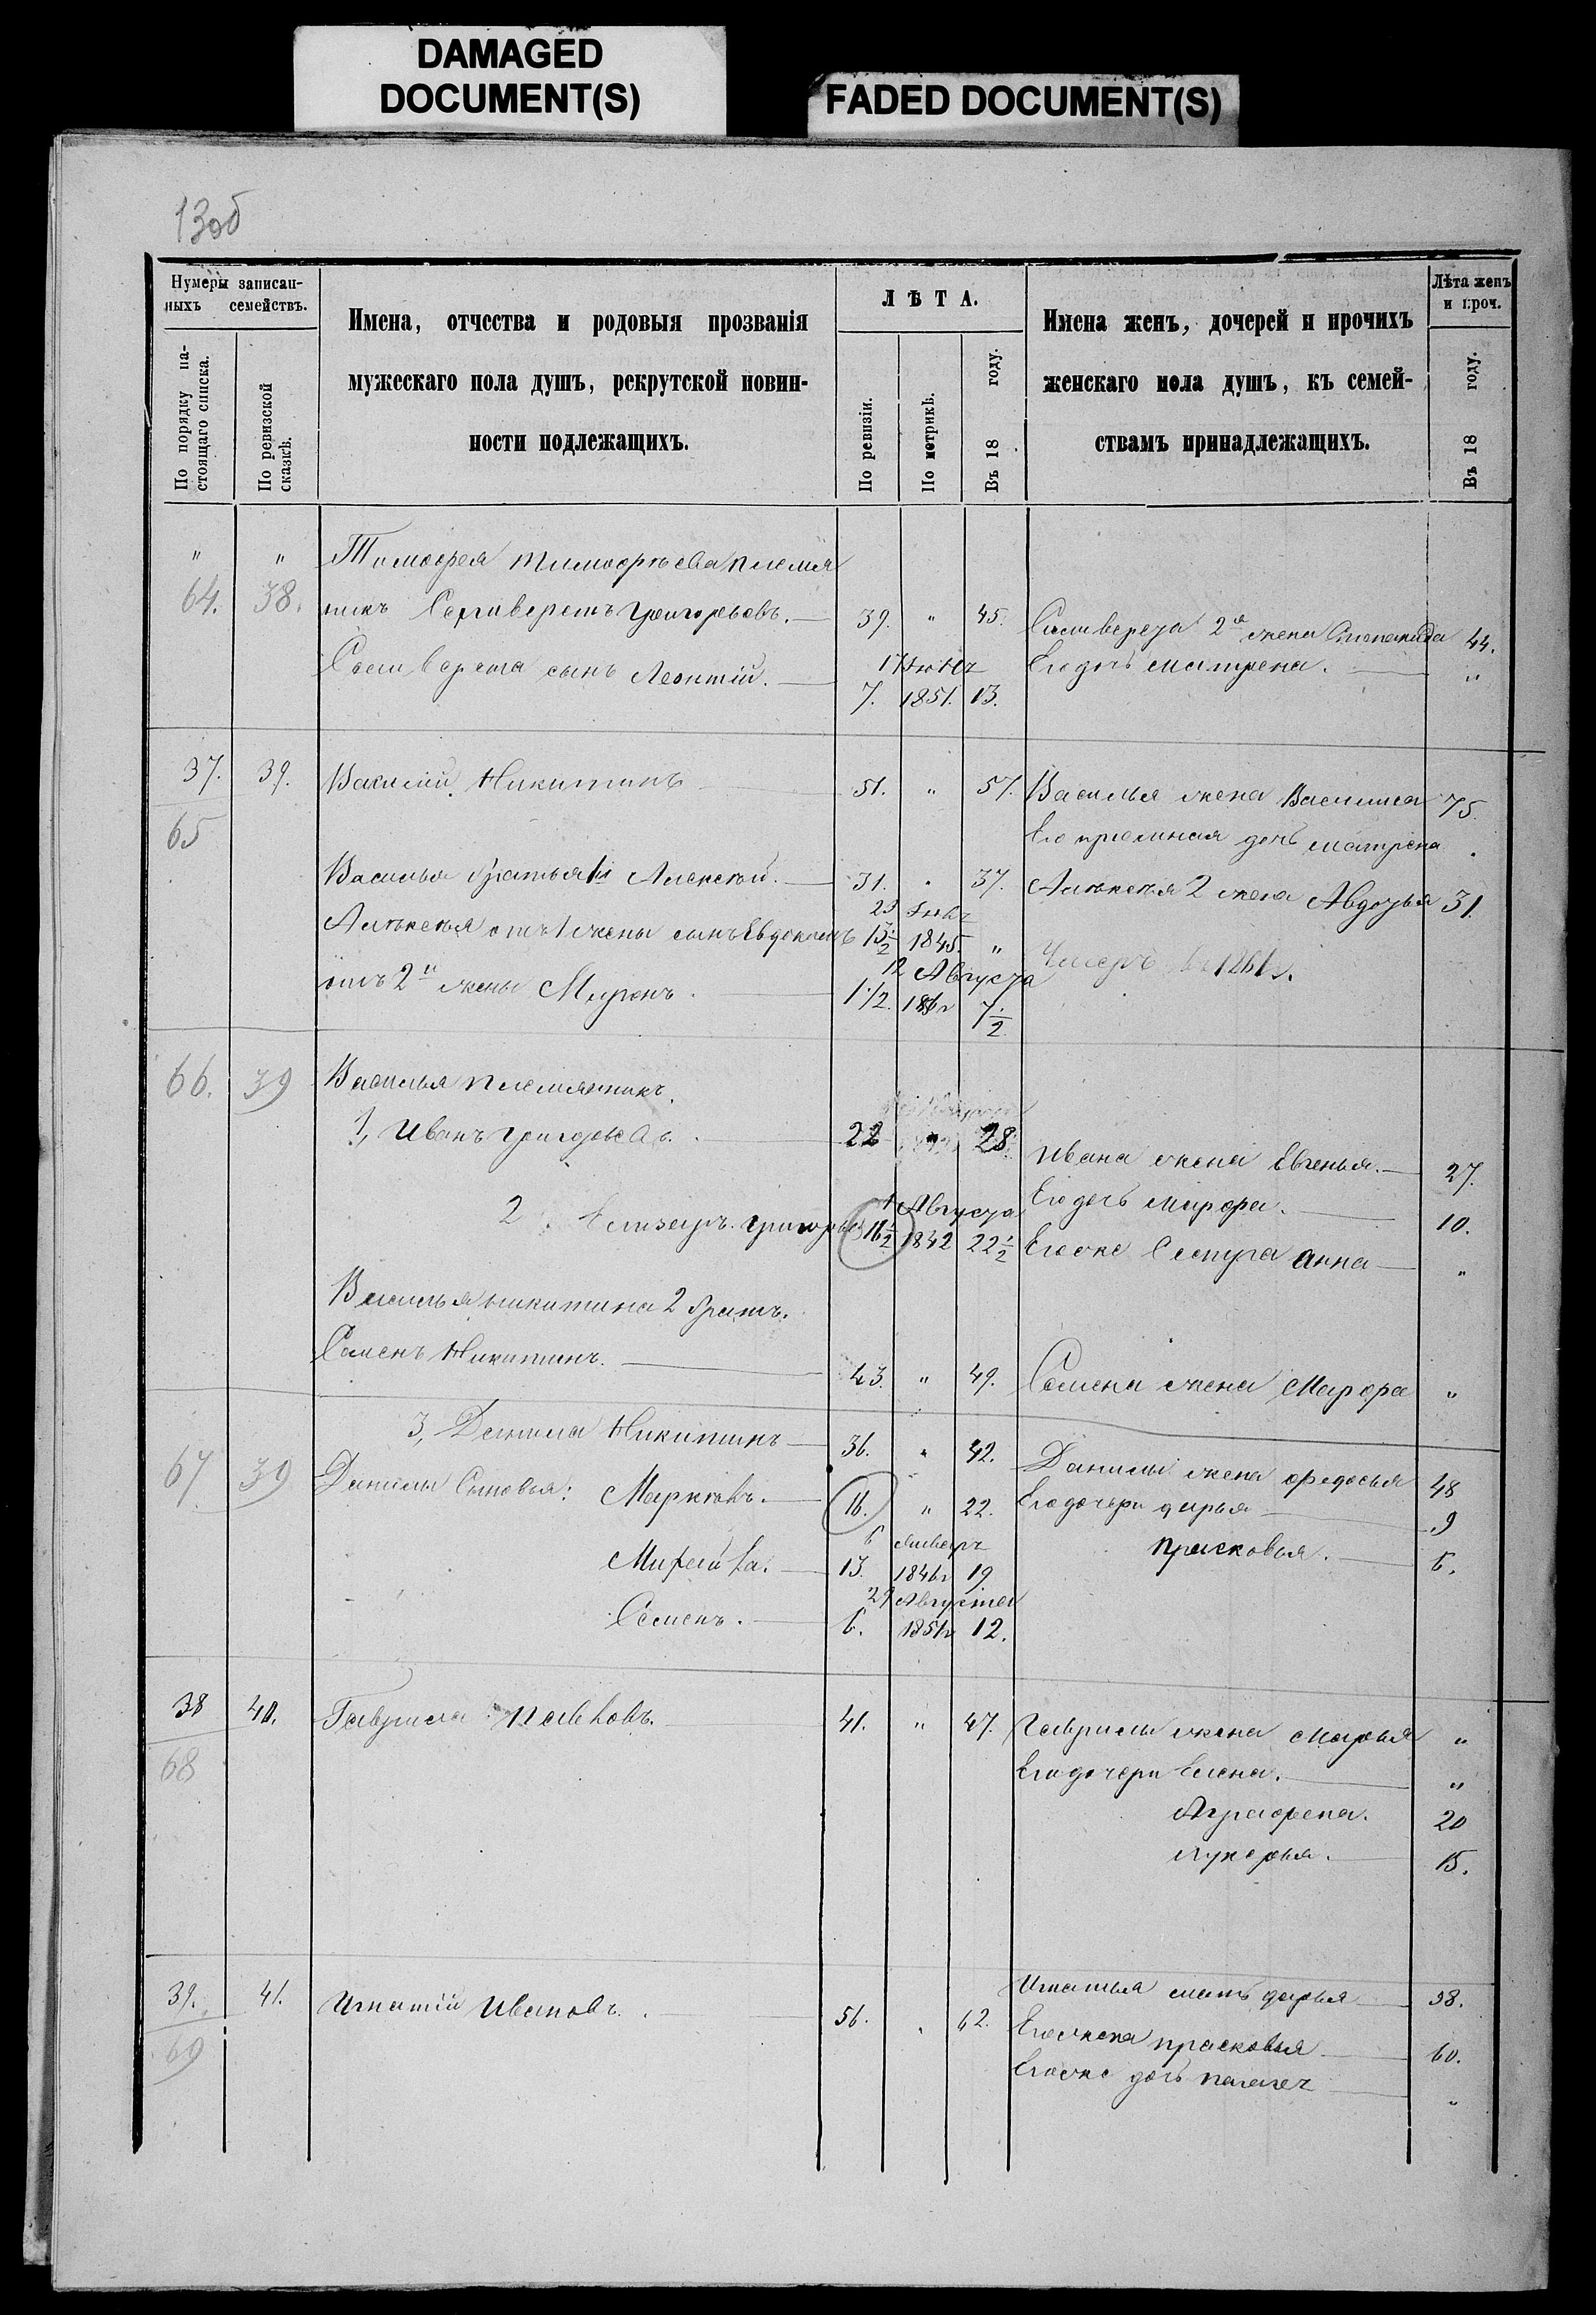 DAMAGED
DOCUMENT(S)
FADED DOCUMENT(S)
13об
Нумеры записан-
ныхъ семействъ.
По порядку на-
стоящаго списка.
По ревизской
сказкѣ.
Имена, отчества и родовыя прозванія
мужескаго пола душъ, рекрутской повин-
ности подлежащихъ.
ЛѢТА.
По ревизіи.
По метрикѣ.
Въ 18 году.
Имена женъ, дочерей и прочихъ
женскаго пола душъ, къ семей-
ствамъ принадлежащихъ.
Лѣта женъ
и проч.
Въ 18 году.
" " Тимофея Тимофѣева племян
64. 38. никъ Григорьевъ. 39. " 45. 2я жена Степанида 44.
сынъ Леонтій. 7. 1851. 13. Его дочь Матрена. "
37. 39. Василій Никитинъ 51. " 57. Василья жена Василиса 75.
65 Его пріемная дочь Матрена
Василья братья 1й Алексѣй. 31. " 37. Алексѣя 2 жена Авдотья 31.
23
Алексѣя отъ 1 жены сынъ Евдокимъ 13 1/2 1845. "
12 Августа
отъ 2й жены Миронъ. 1 1/2. 7 1/2
66. 39 Василья племянникъ.
1, Иванъ Григорьевъ. 22 " 28. Ивана жена Евгенья. 27.
Его дочь Марфа. 10.
1 Августа
2. Елизаръ Григорьев 16 1/2 1842 22 1/2 Егоже сестра Анна "
Василья Никитина 2 братъ.
Семенъ Никитинъ. 43. " 49. Семена жена Марфа "
3, Данила Никитинъ 36. " 42. Данилы жена Федосья 48
67 39 Данилы сыновья: 16. " 22. Его дочери Дарья 9
6 Январь
13. 1846 19 Прасковья. 6.
29 Августа
Семенъ. 6. 1851 12.
38 40. Гаврила 41. " 47. Гаврилы жена Марья "
68 Его дочери Елена. "
Аграфена. 20
Лукерья. 15.
39. 41. Игнатій Ивановъ. 56. " 62. Игнатья мать Дарья 98.
69 Его жена Прасковья 60.
Егоже дочь Палагея "